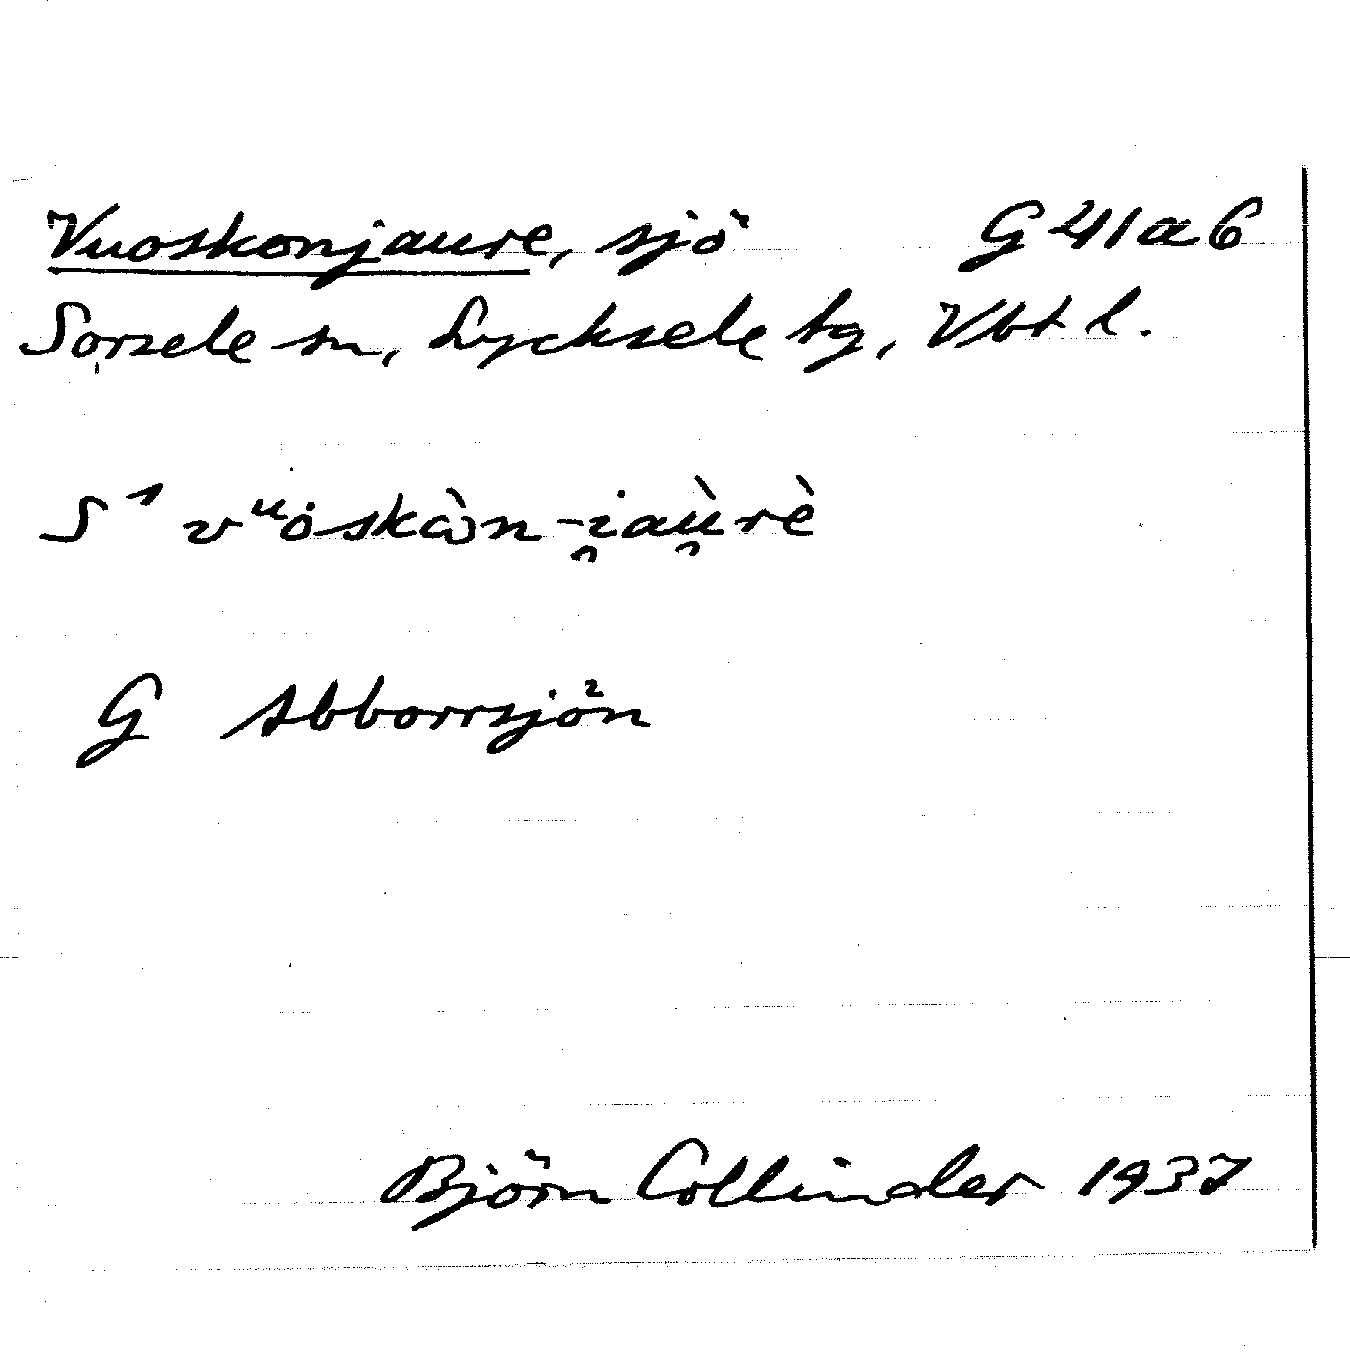 Vuoskonjaure, sjö G 41 a 6
Sorsele sn, Lycksele tg, Vbt l.
S ¹ vᵘȯskɷ̀n-i̯aù̯rè
G Abborrsjön
Björn Collinder 1937